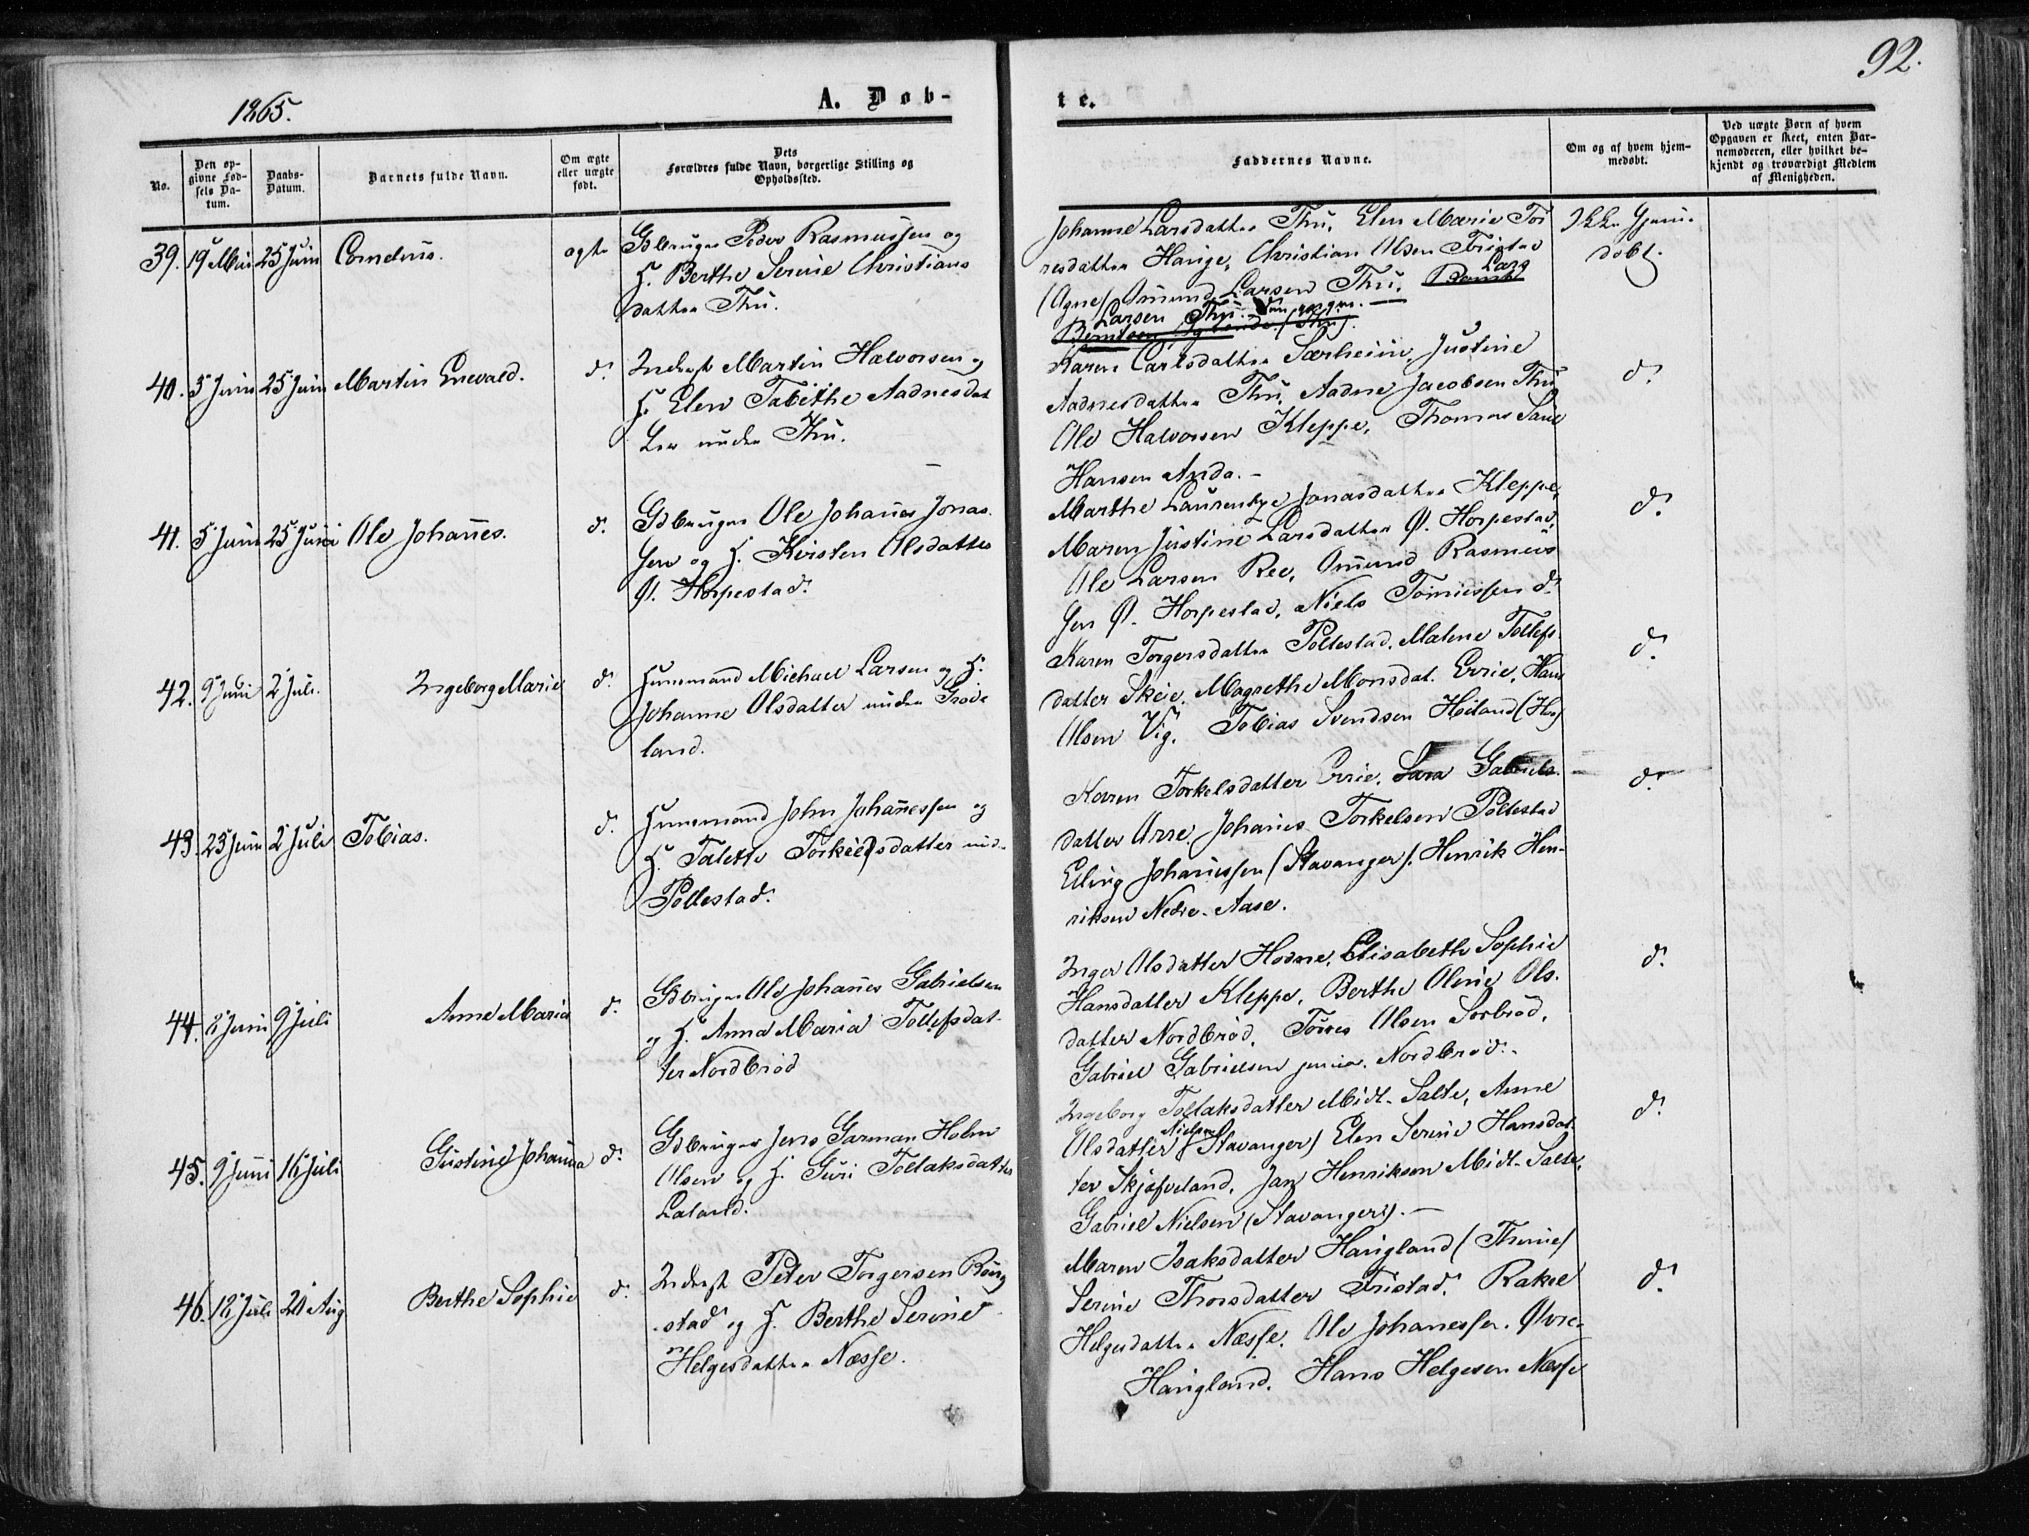 92.
1865.
A. Døb-
te.
No.
Den op-
givne Fød-
sels Da-
tum.
Daabs-
Datum.
Barnets fulde Navn.
Om ægte
eller uægte
født.
Dets
Forældres fulde Navn, borgerlige Stilling og
Opholdssted.
Faddernes Navne.
Om og af hvem hjem-
medøbt.
Ved uægte Børn af hvem
Opgaven er skeet, enten Bar-
nemoderen, eller hvilket be-
kjendt og troværdigt Medlem
af Menigheden.
39. 19 Mai 25 Juni Cornelius. ægte
Gdbruger Peder Rasmussen og
H. Berthe Serine Christians
datter Thu.
Johanne Larsdatter Thu, Elen Marie Tor
resdatter Hauge, Christian Olsen Tristad
(Ogne) Omund Larsen Thu. Lars
Larsen Thu.
Ikke hjem
døbt.
40. 5 Juni 25 Juni Martin Enevald. do.
Inderst Martin Halvorsen og
H. Elen Tabithe Aadnesdat
ter under Thu.
Karen Carlsdatter Særheim, Justine
Aadnesdatter Thu, Aadne Jacobsen Thu
Ole Halvorsen Kleppe, Thomas
Hansen Anda. -
do.
41. 5 Juni 25 Juni Ole Johañes. do.
Gdbruger Ole Johañes Jonas
sen og H. Kirsten Olsdatter
Ø. Horpestad.
Marthe Laurentze Jonasdatter Kleppe,
Maren Justine Larsdatter Ø. Horpestad,
Ole Larsen Ree, Omund Rasmus
sen Ø. Horpestad, Niels Tønnessen do.
do.
42. 9 Juni 2 Juli. Ingeborg Marie do.
Huusmand Michael Larsen og H.
Johanne Olsdatter under Grøde
land.
Karen Torgersdatter Pollestad, Malene Tollefs
datter Skeie, Magrethe Monsdat. Errie, Hans
Olsen Vig, Tobias Svendsen Høiland (Haa)
do.
43. 25 Juni 2 Juli Tobias. do.
Huusmand John Johañessen og
H. Talette Torkelsdatter und.
Pollestad.
Karen Torkelsdatter Errie, Sara Gabriels-
datter Orre, Johañes Torkelsen Pollestad
Elling Johañessen (Stavanger). Henrik Hen-
riksen Nedre-Aase.
do.
44. 8 Juni 9 Juli Anne Maria do.
Gdbruger Ole Johañes Gabrielsen
og H. Anna Maria Tollefsdat-
ter Nordbrød
Inger Olsdatter Hodne, Elisabeth Sophie
Hansdatter Kleppe, Berthe Oline Ols-
datter Nordbrød, Torres Olsen Sørbrød,
Gabriel Gabrielsen junior. Nordbrød.
do.
45. 9 Juni 16 Juli Gustine Johanna do.
Gdbruger Jens Garman Holm
Olsen og H. Guri Tollaksdatter
Laland.
Ingeborg Tollaksdatter Midt-Salte, Anne
Olsdatter Nielsen (Stavanger) Elen Serine Hansdat
ter Skjæfveland, Jan Henriksen Midt-Salte,
Gabriel Nielsen (Stavanger). -
do.
46. 18 Juli 20 Aug Berthe Sophie do.
Inderst Peter Torgersen
stad og H. Berthe Serine
Helgesdatter Næsse.
Maren Isaksdatter Haugland (Thime)
Serine Thorsdatter Tristad. Rakel
Helgesdatter Næsse. Ole Johanessen. Øvre-
Haugland. Hans Helgesen Næsse
do.